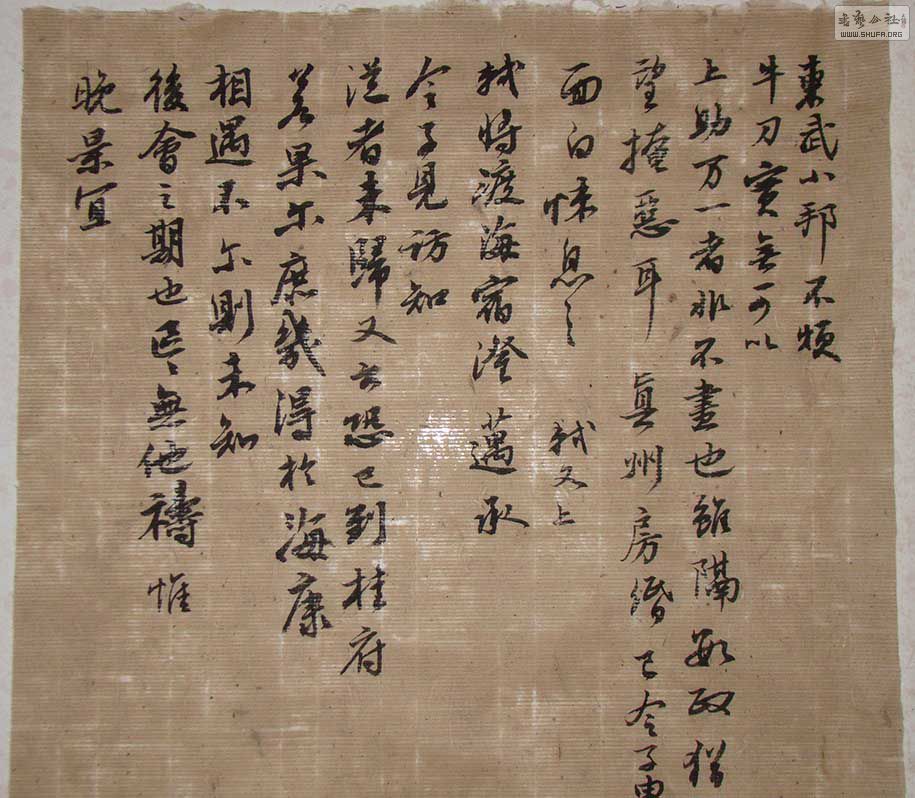 東武小邦不煩
牛刀實無可以
上助万一者非不盡也雖隔數政猶
望掩惡耳真州房緡已令子由
面白悚息〻 軾又上
軾將渡海宿澄邁承
令子見訪知
從者未歸又云恐已到桂府
若果尔庶幾得於海康
相遇不尔則未知
後會之期也區〻無他禱惟
晚景宜
書藝公社
WWW.SHUFA.ORG